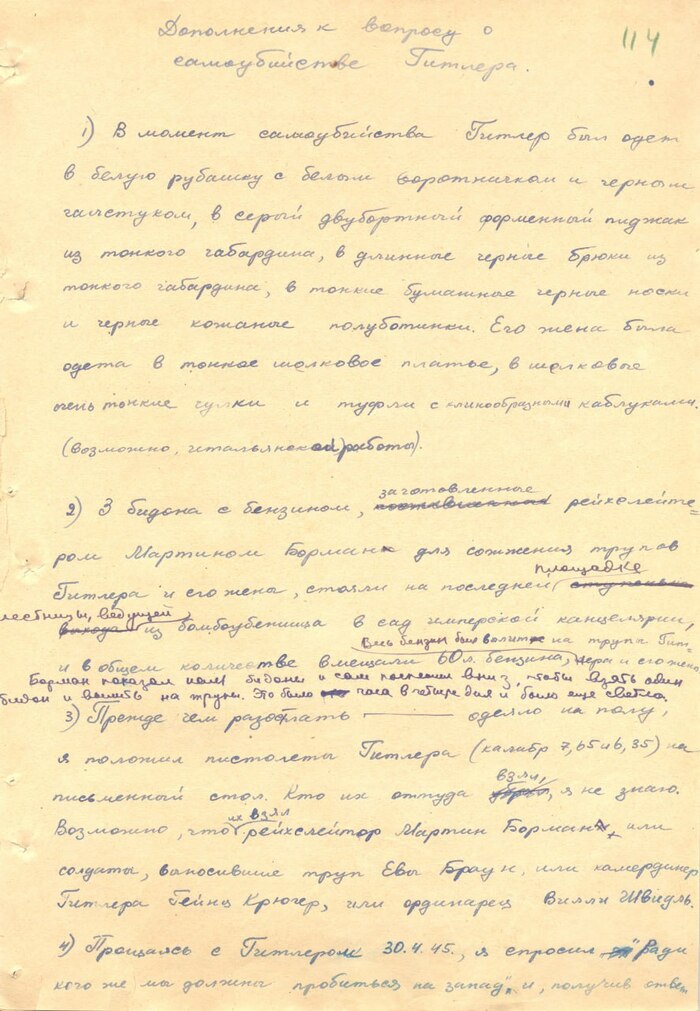 114
Дополнения к вопросу о
самоубийстве Гитлера.
1) В момент самоубийства Гитлер был одет
в белую рубашку с белым воротничком и черным
галстуком, в серый двубортный форменный пиджак
из тонкого габардина, в длинные черные брюки из
тонкого габардина, в тонкие бумажные черные носки
и черные кожаные полуботинки. Его жена была
одета в тонкое шелковое платье, в шелковые
очень тонкие чулки и туфли с клинообразными каблуками.
(возможно, итальянской работы).
заготовленные
2) 3 бидона с бензином, рейхслейте=
ром Мартином Борман для сожжения трупов
площадке
Гитлера и его жены, стояли на последней ступеньке
лестницы, ведущей
выхода из бомбоубежища в сад имперской канцелярии,
Весь бензин был вылит на трупы Гит-
и в общем количестве вмещали 60 л. бензина, лера и его жены
Борман показал нам бидоны и сам поспешил вниз, чтобы взять один
бидон и вылить на трупы. Это было часа в четыре дня и было еще светло.
3) Прежде чем разостлать одеяло на полу,
я положил пистолеты Гитлера (калибр 7,65 и 6,35) на
взял,
письменный стол. Кто их оттуда я не знаю.
их взял
Возможно, что рейхслейтор Мартин Борман, или
солдаты, выносившие труп Евы Браун, или камердинер
Гитлера Гейнц Крюгер, или ординарец Вилли Швидль.
4) Прощаясь с Гитлером 30.4.45., я спросил "Ради
кого же мы должны пробиться на запад" и, получив ответ